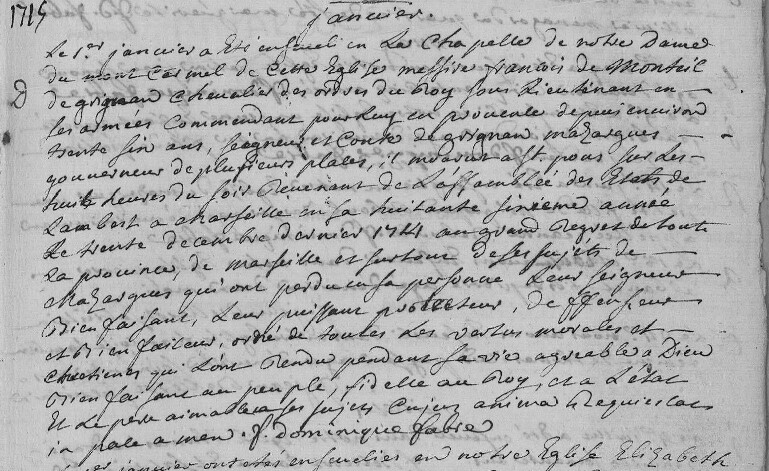 1715
janvier.
Le 1er janvier a Eté enseueli en La Chapelle de notre Dame
du mont Carmel de Cette Eglise messire francois de Monteil
D de grignan Chevalier des ordres du Roy sous Lieutenant en
les armées Commandant pour Luy en provence depuis environ
trente six ans, seigneur et Comte de grignan mazargues
gouverneur de plusieurs places, il mourut a St. pons sur Les
huit heures du soir Revenant de L'assamblée des Etats de
Lambesc a Marseille en sa huitante sixieme année
Le trente decembre dernier 1714 au grand Regret de toute
La province, de marseille et surtout de ses sujets de
Mazargues qui ont perdu en sa personne Leur seigneur
Bienfaisant, Leur puissant protecteur, deffenseur
et Bienfaiteur, orné de toutes Les vertus morales et
chretienes qui L'ont Rendu pendant sa vie agreable a Dieu
Bienfaisant au peuple, fidelle au Roy, et a L'état
Et Le pere aimable a ses sujets Cujus anima Requiescat
in pace amen. f. dominique fabre
janvier ont etés ensevelies en notre Eglise Elizabeth